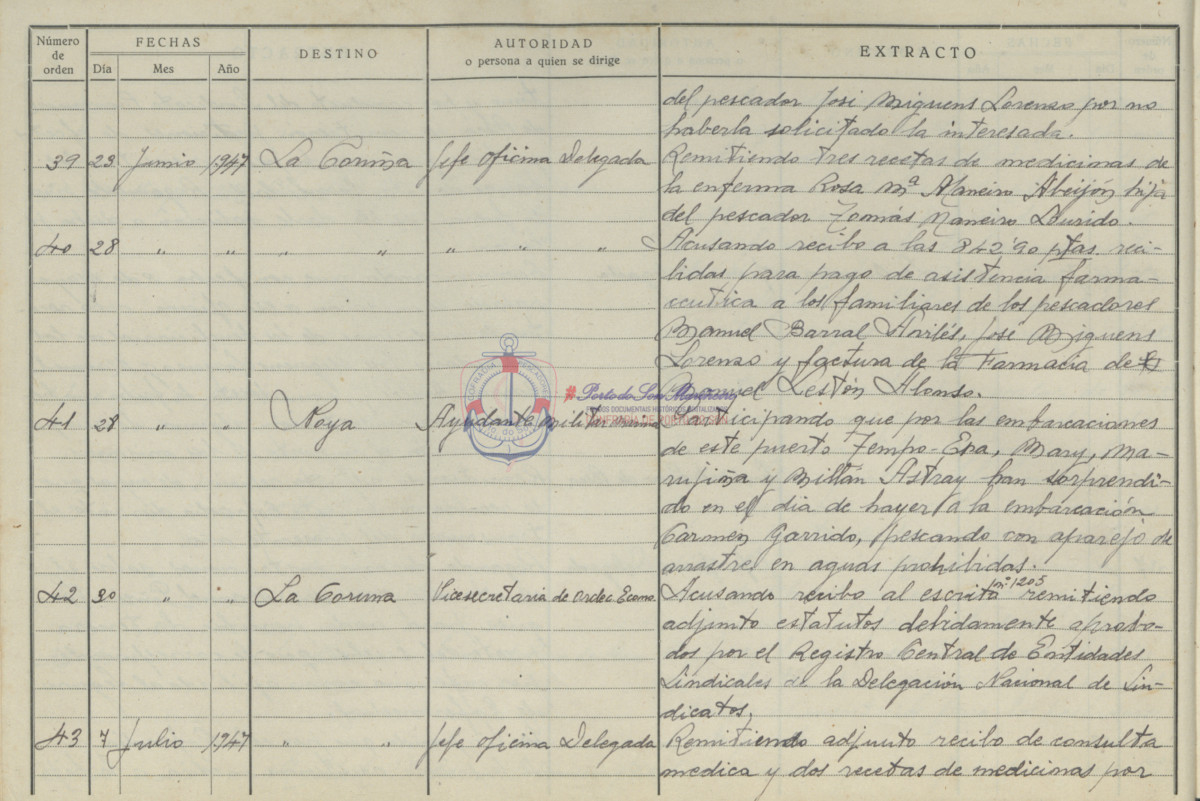 Número de orden
FECHAS
Día Mes Año
DESTINO
AUTORIDAD
o persona a quien se dirige
EXTRACTO
del pescador José Miguens Lorenzo por no
haberla solicitado la interesada.
39 23 Junio 1947 La Coruña Jefe oficina Delegada Remitiendo tres recetas de medicinas de
la enferma Rosa Mª Maneiro Abeijón hija
del pescador Tomás Maneiro Lourido.
40 28 " " " " " " " Acusando recibo a las 842'90 ptas. reci-
bidas para pago de asistencia farma-
ceutica a los familiares de los pescadores
Manuel Barral Avilés, José Miguens
Lorenzo y factura de la Farmacia de
Manuel Lestón Alonso.
41 28 " " Noya Ayudante militar Participando que por las embarcaciones
de este puerto Tempo-Era, Mary, Ma-
rujiña y Millán Astray han sorprendi-
do en el dia de hayer a la embarcación
Carmen Garrido, pescando con aparejo de
arrastre en aguas prohibidas.
42 30 " " La Coruna Vicesecretaria de Ordec. Econo. Acusando recibo al escrito nº 1205 remitiendo
adjunto estatutos debidamente aproba-
dos por el Registro Central de Entidades
Sindicales de la Delegación Nacional de Sin-
dicatos,
43 7 Julio 1947 " " Jefe oficina Delegada Remitiendo adjunto recibo de consulta
medica y dos recetas de medicinas por
# Porto do Son Mariñeiro
FONDOS DOCUMENTAIS HISTÓRICOS DIXITALIZADOS
COFRADÍA DE PORTO DO SON